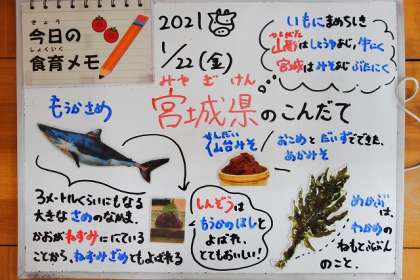 きょう
今日の
しょくいく
食育メモ
2021
1/22(金)
みやぎけん
宮城県のこんだて
いもにまめちしき
やまがた
山形はしょうゆあじ、牛にく
宮城はみそあじ、ぶたにく
もうかさめ
せんだい
仙台みそ
おこめとだいずでできた、
あかみそ
3メートルくらいにもなる
大きなさめのなかま。
かおがねずみににている
ことから、ねずみざめともよばれる
しんぞうは
もうかのほしと
よばれ、
とてもおいしい!
めかぶは、
わかめの
ねもとぶぶん
のこと。